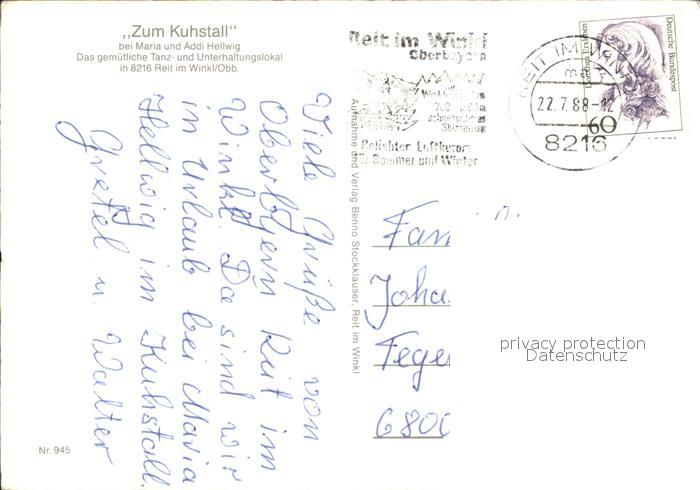 „Zum Kuhstall“
bei Maria und Addi Hellwig
Das gemütliche Tanz- und Unterhaltungslokal
in 8216 Reit im Winkl/Obb.
Viele Grüße von
Oberbayern Reit im
Winkl. Da sind wir
in Urlaub bei Maria
Hellwig im Kuhstall.
Gretel u. Walter
Nr. 945
Aufnahme und Verlag Benno Stockklauser, Reit im Winkl
Reit im Winkl
Oberbayern
Beliebter Luftkurort
für Sommer und Winter
REIT IM WINKL
22.7.88-12
8216
Deutsche Bundespost
Dorothea Erxleben
60
Fam
Joha
Fege
6800
privacy protection
Datenschutz